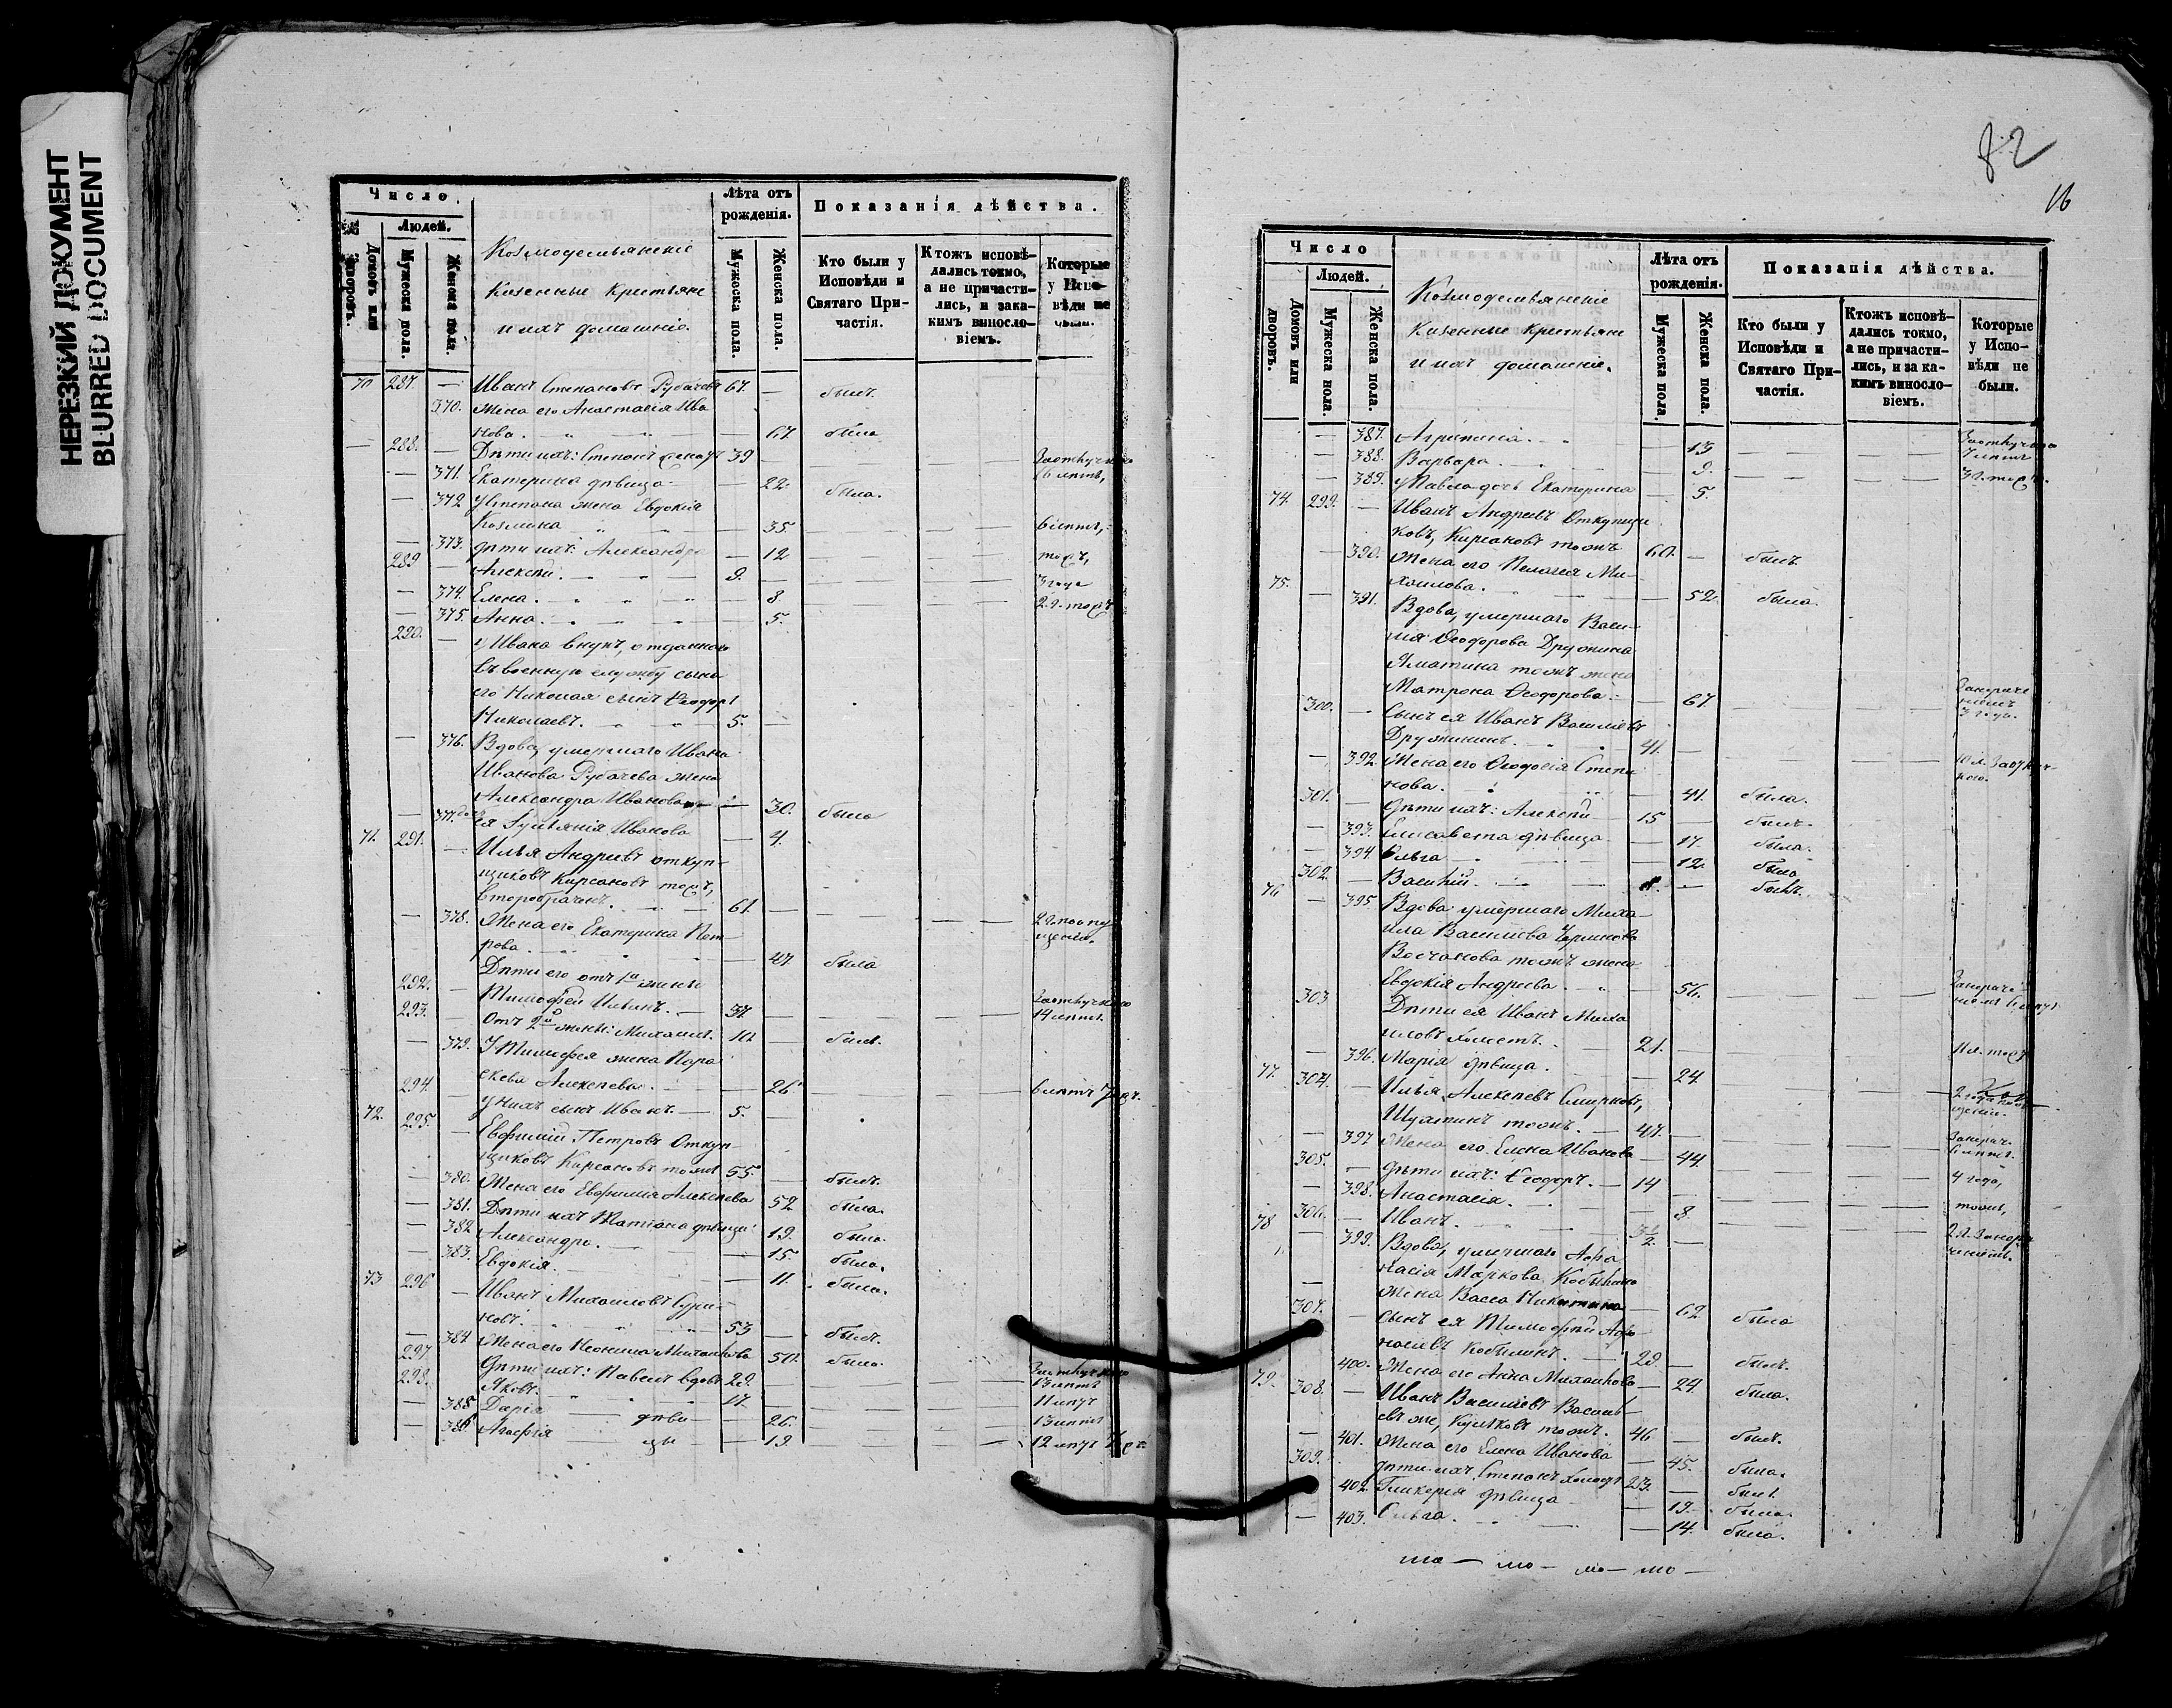 НЕРЕЗКИЙ ДОКУМЕНТ
BLURRED DOCUMENT
Число.
Людей.
Домовъ или дворовъ.
Мужеска пола.
Женска пола.
Козмодемьянскіе
Казенные крестьяне
и ихъ домашніе.
Лѣта отъ рожденія.
Мужеска пола.
Женска пола.
Показанія дѣйства.
Кто были у Исповѣди и Святаго Причастія.
Ктожъ исповѣдались токмо, а не причастились, и за какимъ винословіемъ.
Которые у Исповѣди не были.
70 287. — Иванъ Степановъ Рубачевъ 67. — былъ.
370. Жена его Анастасія Ива
нова. — 67 была
— 288. — Дѣти ихъ: Степанъ 39 — За отлучкою
371. Екатерина дѣвица — 22. была.
— 372 У Степана жена Евдокія
Козмина — 35. — 6 лѣтъ,
— 373. дѣти ихъ: Александра — 12 — тожъ,
289 — Алексѣй. — 9. — 3 года
— 374. Елена. — 8. — 2 г. тожъ
— 375. Анна. — 5.
290. — у Ивана внукъ, отданнаго
въ военную службу сына
его Николая сынъ Ѳеодоръ
Николаевъ. — 5. —
— 376. Вдова, умершаго Ивана
Иванова Рубачева жена
Александра Иванова — 30. была
— 377. Иванова — 4.
71. 291. — Илья Андреевъ откуп-
щиковъ Кирсановъ тожъ,
второбрачный. — 61. —
— 378. Жена его Екатерина Пет-
рова. — 47 была
292. — Дѣти его отъ 1й жены
Тимофей Ильинъ. — 37. — За отлучкою 14 лѣтъ.
293. — Отъ 2й жены: Михаилъ. 10 — былъ.
— 379. У Тимофея жена Пара
скева Алексѣева. — 26 — 6 лѣтъ
294. — у нихъ сынъ Иванъ. — 5. —
72. 295. — Евфимій Петровъ Откуп-
щиковъ Кирсановъ тожъ 55. — былъ.
— 380. Жена его Евфимія Алексѣева 52 была.
— 381. Дѣти ихъ Татіана дѣвица 19. была.
— 382 Александра. — 15 была.
— 383. Евдокія. — 11. была.
73 296 — Иванъ Михаиловъ Сури-
ковъ. — 53 — былъ.
— 384 Жена его Михайлова 50. была.
297 — Дѣти ихъ: Павелъ вдовъ 29. — За отлучкою 13 лѣтъ
298. — Яковъ. — 17. — 11 лѣтъ
— 385 Дарія — дѣви- — 26. — 13 лѣтъ
— 386 Агафія — цы — 19. — 12 лѣтъ
82
16
Число
Людей.
Домовъ или дворовъ.
Мужеска пола.
Женска пола.
Козмодемьянскіе
Казенные крестьяне
и ихъ домашніе.
Лѣта отъ рожденія.
Мужеска пола.
Женска пола.
Показанія дѣйства.
Кто были у Исповѣди и Святаго Причастія.
Ктожъ исповѣдались токмо, а не причастились, и за какимъ винословіемъ.
Которые у Исповѣди не были.
— 387. Агрипина. — 13 — За отлучкою 7 лѣтъ
— 388. Варвара. — 9. — 3 г. тожъ.
— 389. у Павла дочь Екатерина — 5.
74. 299. — Иванъ Андреевъ Откупщи
ковъ, Кирсановъ тожъ 60. — былъ
— 390. Жена его Пелагея Ми-
хаилова. — 52 была.
75. — 391. Вдова, умершаго Васи-
лія Ѳеодорова Дружинина
тожъ жена
Матрона Ѳеодорова. — 67. — 3 года.
300. — Сынъ ея Иванъ Василіевъ
Дружининъ. — 41. —
— 392. Жена его Ѳеодосія Степа
нова. — 41. была.
301. — Дѣти ихъ: Алексѣй — 15 — былъ.
— 393. Елисавета дѣвица — 17. была.
— 394. Ольга — 12. была
302. — Василій. — былъ.
76 — 395. Вдова умершаго Миха
ила Василіева
тожъ жена
Евдокія Андреева — 56.
303 — Дѣти ея Иванъ Миха
иловъ холостъ. — 21. — тожъ
— 396. Марія дѣвица. — 24.
77. 304. — Илья Алексѣевъ Смирновъ,
тожъ. — 47. —
— 397 Жена его Елена Иванова — 44.
305. — дѣти ихъ: Ѳеодоръ. — 14 — 4 года,
— 398. Анастасія. — 8. — тожъ,
306. — Иванъ. 3½ —
78 — 399. Вдова, умершаго Афа
насія Маркова Кобылина
жена Васса Никитина — 62 была
307. — сынъ ея Тимофей Афа
насіевъ Кобылинъ. — 29. — былъ.
— 400. Жена его Анна Михайлова — 24. была.
79. 308. — Иванъ Василіевъ Василь-
евъ же, тожъ. 46. — былъ.
— 401. Жена его Елена Иванова — 45. была.
309. — дѣти ихъ Степанъ холостъ 23. — былъ.
— 402. Гликерія дѣвица — 19. была.
— 403. Ольга. — 14. была.